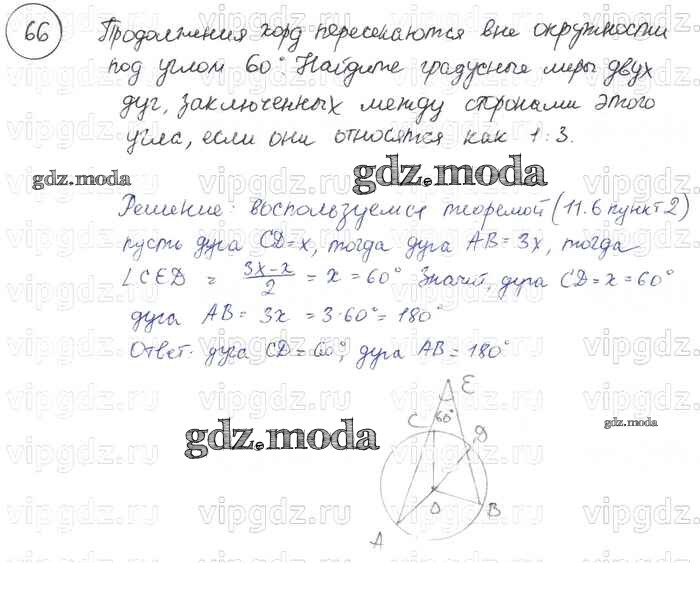 66
Продолжения хорд пересекаются вне окружности
под углом 60°. Найдите градусные меры двух
дуг, заключенных между сторонами этого
угла, если они относятся как 1:3.
gdz.moda
gdz.moda
Решение: воспользуемся теоремой (11.6 пункт 2)
пусть дуга CD=x, тогда дуга AB=3x, тогда
∠CED = (3x-x)/2 = x = 60° Значит, дуга CD=x=60°
дуга AB = 3x = 3·60°=180°
Ответ: дуга CD=60°, дуга AB=180°
gdz.moda
gdz.moda
E
C
60°
D
O
B
A
vipgdz.ru